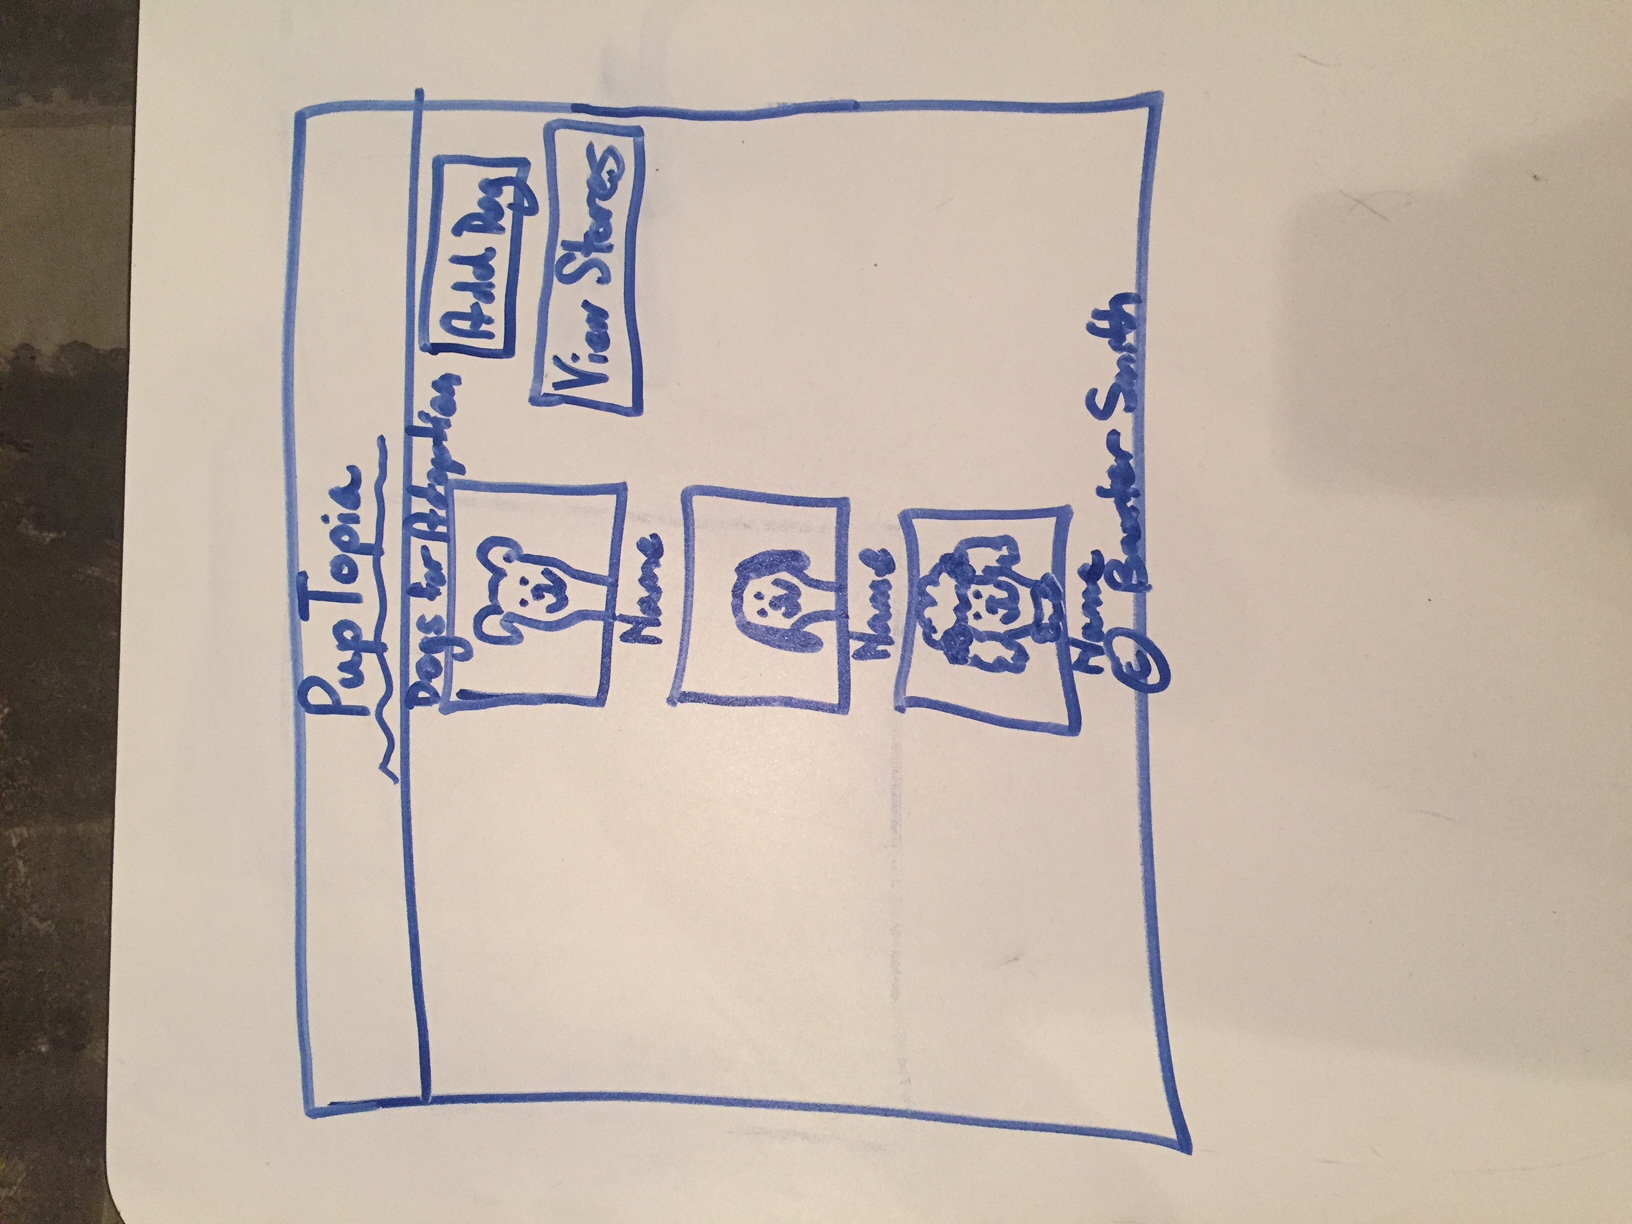 PupTopia
Dogs for Adoption
Add Dog
View Stores
Name
Name
Name
© Baxter Smith